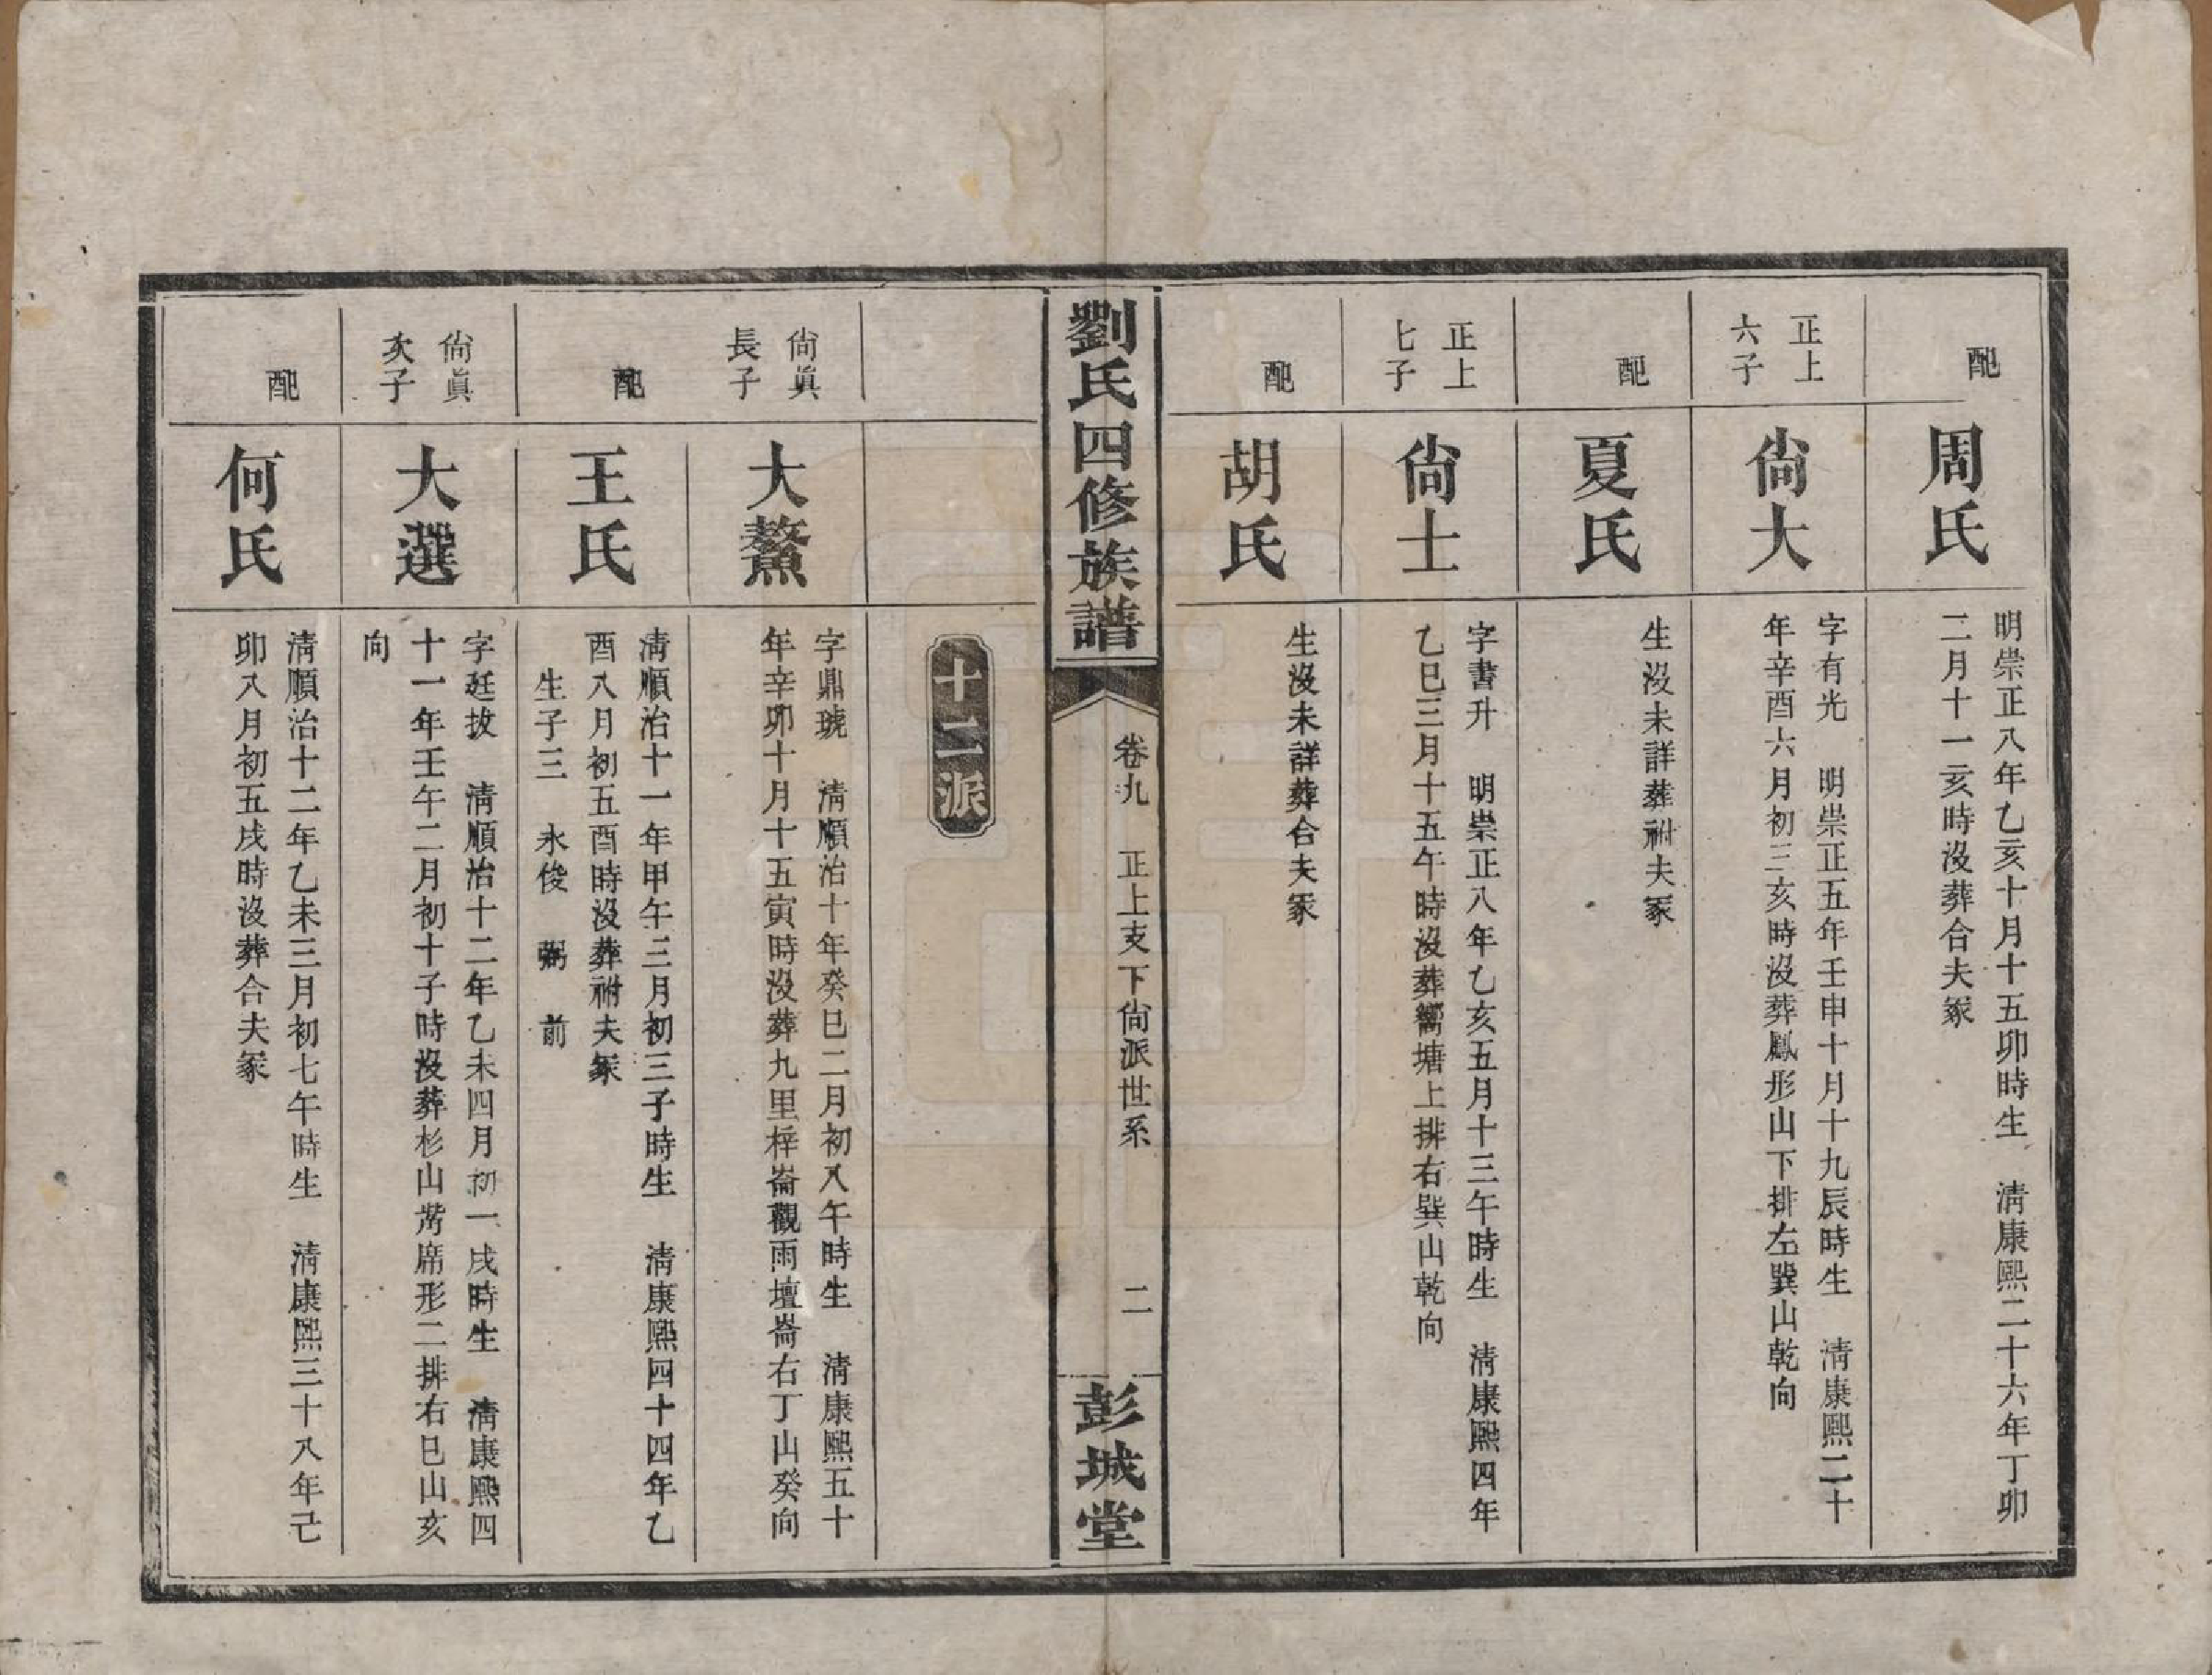 配
周氏
明崇正八年乙亥十月十五卯時生　清康熙二十六年丁卯
二月十一亥時沒葬合夫冢
正上
六子
尙大
字有光　明崇正五年壬申十月十九辰時生　清康熙二十
年辛酉六月初三亥時沒葬鳳形山下排左巽山乾向
配
夏氏
生沒未詳葬祔夫冢
正上
七子
尙士
字書升　明崇正八年乙亥五月十三午時生　清康熙四年
乙巳三月十五午時沒葬嚮塘上排右巽山乾向
配
胡氏
生沒未詳葬合夫冢
劉氏四修族譜
卷九　正上支下尙派世系
二
彭城堂
十二派
尙眞
長子
大鰲
字鼎琥　清順治十年癸巳二月初八午時生　清康熙五十
年辛卯十月十五寅時沒葬九里梓崙觀雨壇崙右丁山癸向
配
王氏
清順治十一年甲午三月初三子時生　清康熙四十四年乙
酉八月初五酉時沒葬祔夫冢
生子三　永俊　弼　前
尙眞
次子
大選
字廷拔　清順治十二年乙未四月初一戌時生　清康熙四
十一年壬午二月初十子時沒葬杉山凿席形二排右巳山亥
向
配
何氏
清順治十二年乙未三月初七午時生　清康熙三十八年己
卯八月初五戌時沒葬合夫冢